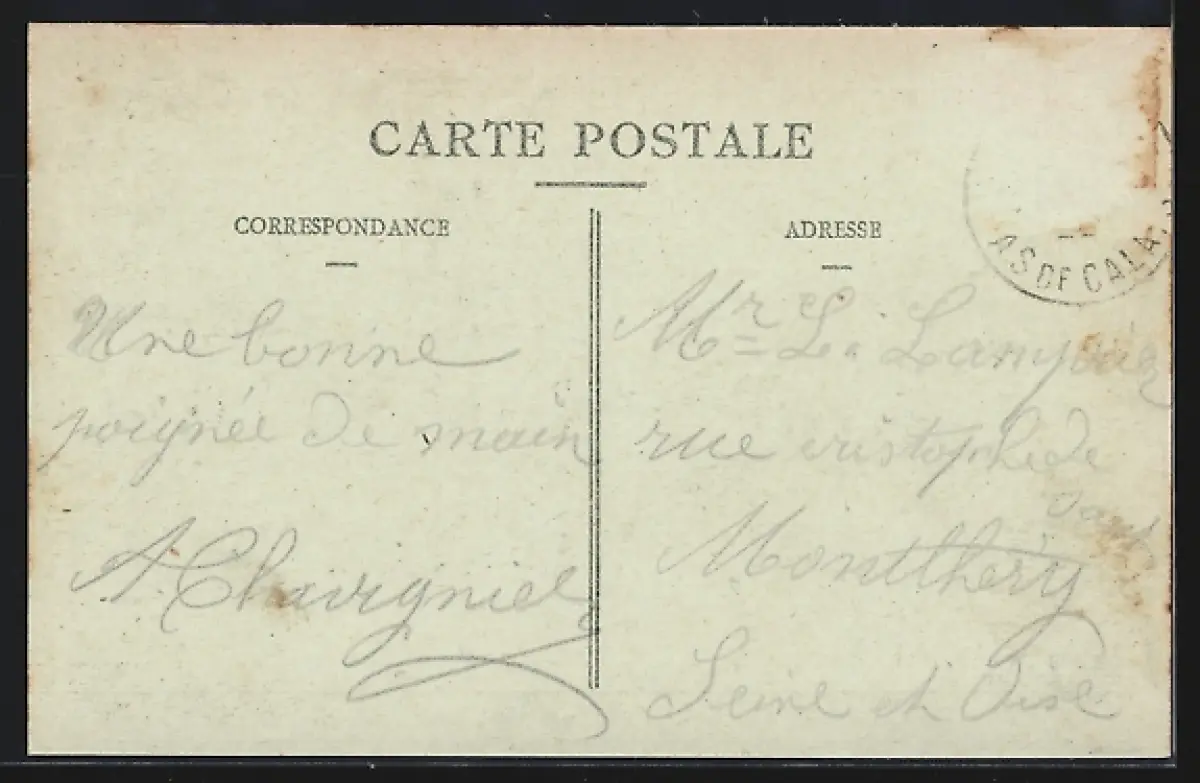 CARTE POSTALE
CORRESPONDANCE
ADRESSE
AS DE CALA
Une bonne
poignée de main
A. Chavigniel
Mr L.
rue cristophe de
Montlhéry
Seine et Oise